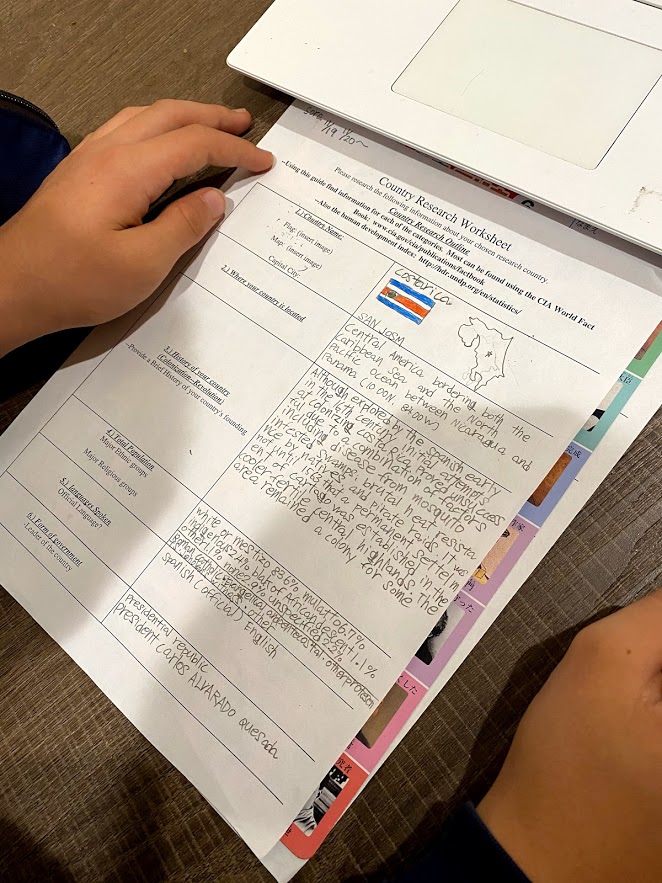 11/19 11/20~
Country Research Worksheet
Please research the following information about your chosen research country.
Country Research Outline
-Using this guide find information for each of the categories. Most can be found using the CIA World Fact
Book: www.cia.gov/cia/publications/factbook
-Also the human development index: http://hdr.undp.org/en/statistics/
1.) Country Name:
Flag: (insert image)
Map: (insert image)
Capital City:
costarica
SAN JOSM
2.) Where your country is located
Central America bordering both the
Caribbean Sea and the North
Pacific ocean between Nicaragua and
Panama (10 00N 8400W)
3.) History of your country
(Colonization--Revolution)
--Provide a Brief History of your country's founding
Although explored by the spanish early
in the 16th century, initial attempts
at colonizing Costa Rica proved unsuccess
ful due to a combination of factors
including disease from mosquito
infested swamps, brutal heat, resista
nce by natives and pirate raids. it was
not until that a permanent settlem
ent of cartago was established in the
cooler, fertile central highlands. the
area remained a colony for some
4.) Total Population
Major Ethnic groups
Major Religious groups
white or mestizo 83.6% mulatto 6.7%
indigenous 2.4% black of African descent 1.1%
other 1.1% none 2.9% unspecified 2.2%
5.) languages Spoken
Official Language?
Spanish (official) English
6.) Form of government
-Leader of the country
presidential republic
president carlos ALVARADO quesada